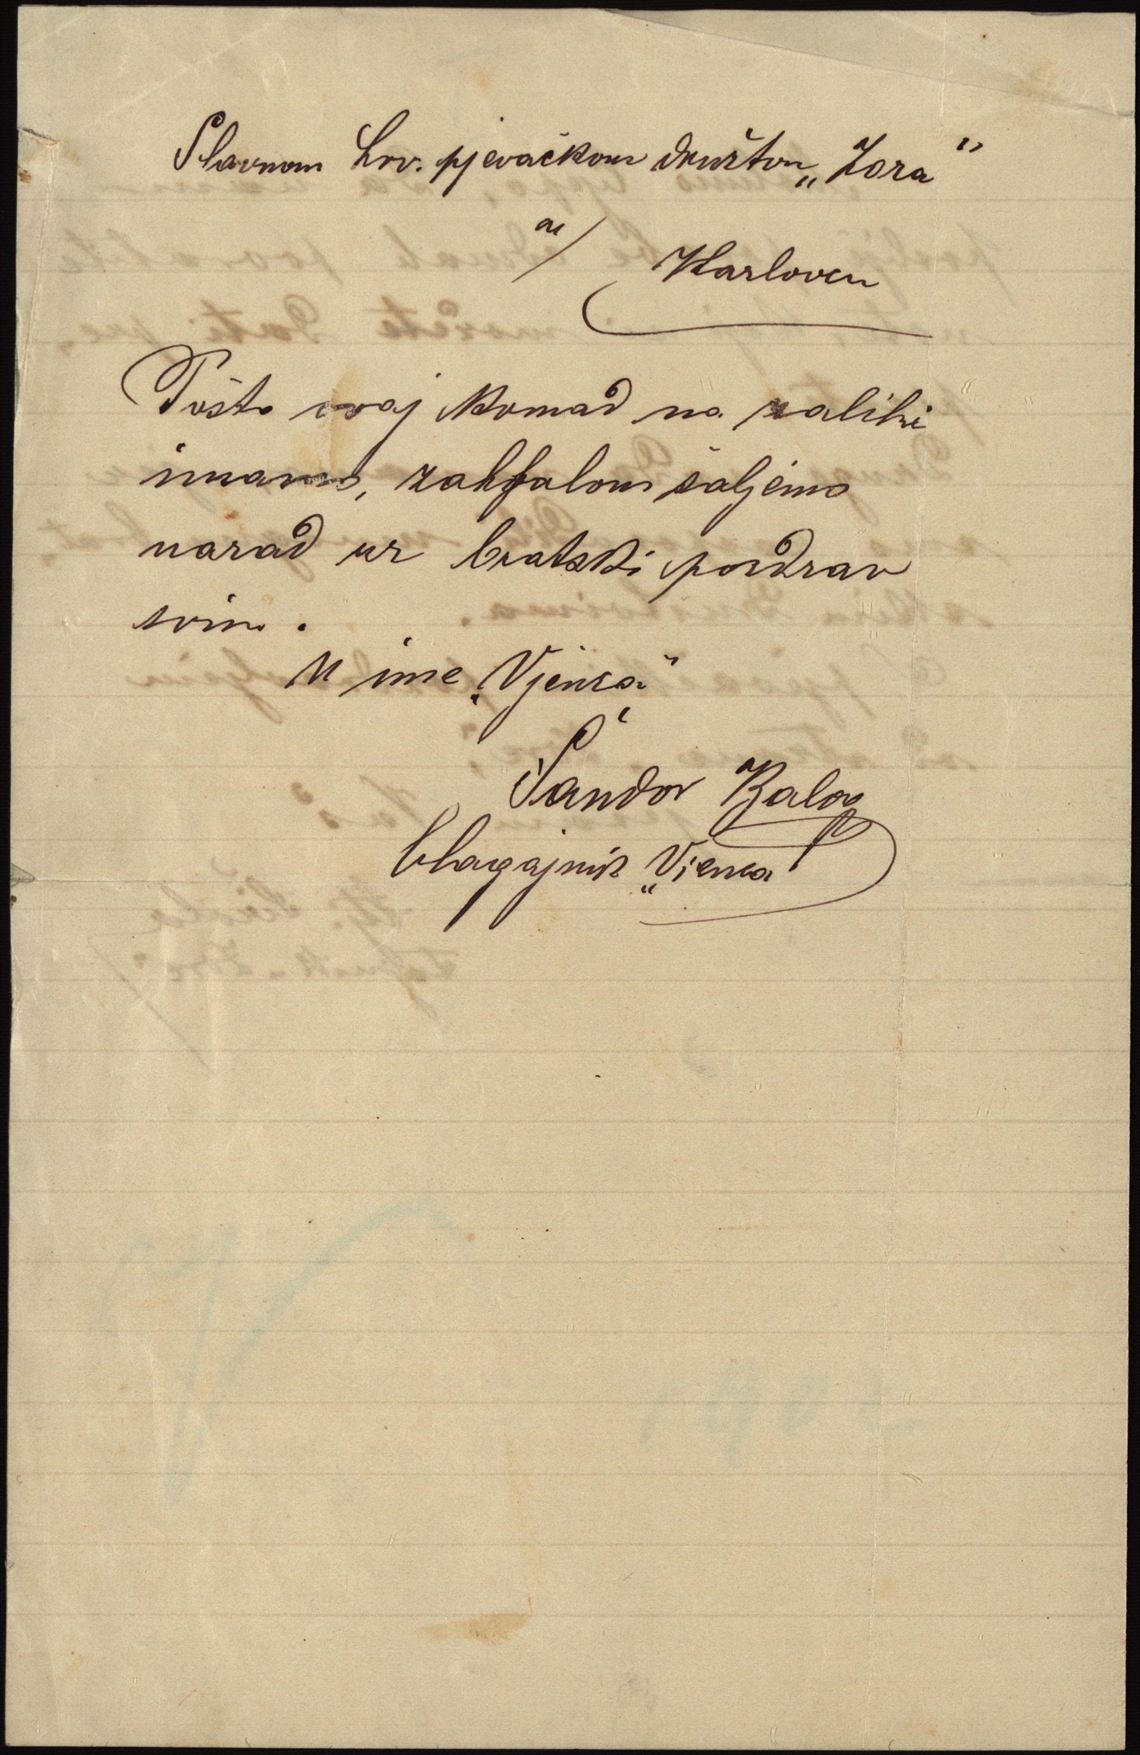 Slavnom hrv. pjevačkom društvu „Zora"
u/
Karlovcu
Pošto ovaj komad na zalihi
imamo, zahfalom šaljemo
narad uz bratski pozdrav
svim.
U ime „Vjenca"
Šandor Balog
blagajnik „Vienca
190